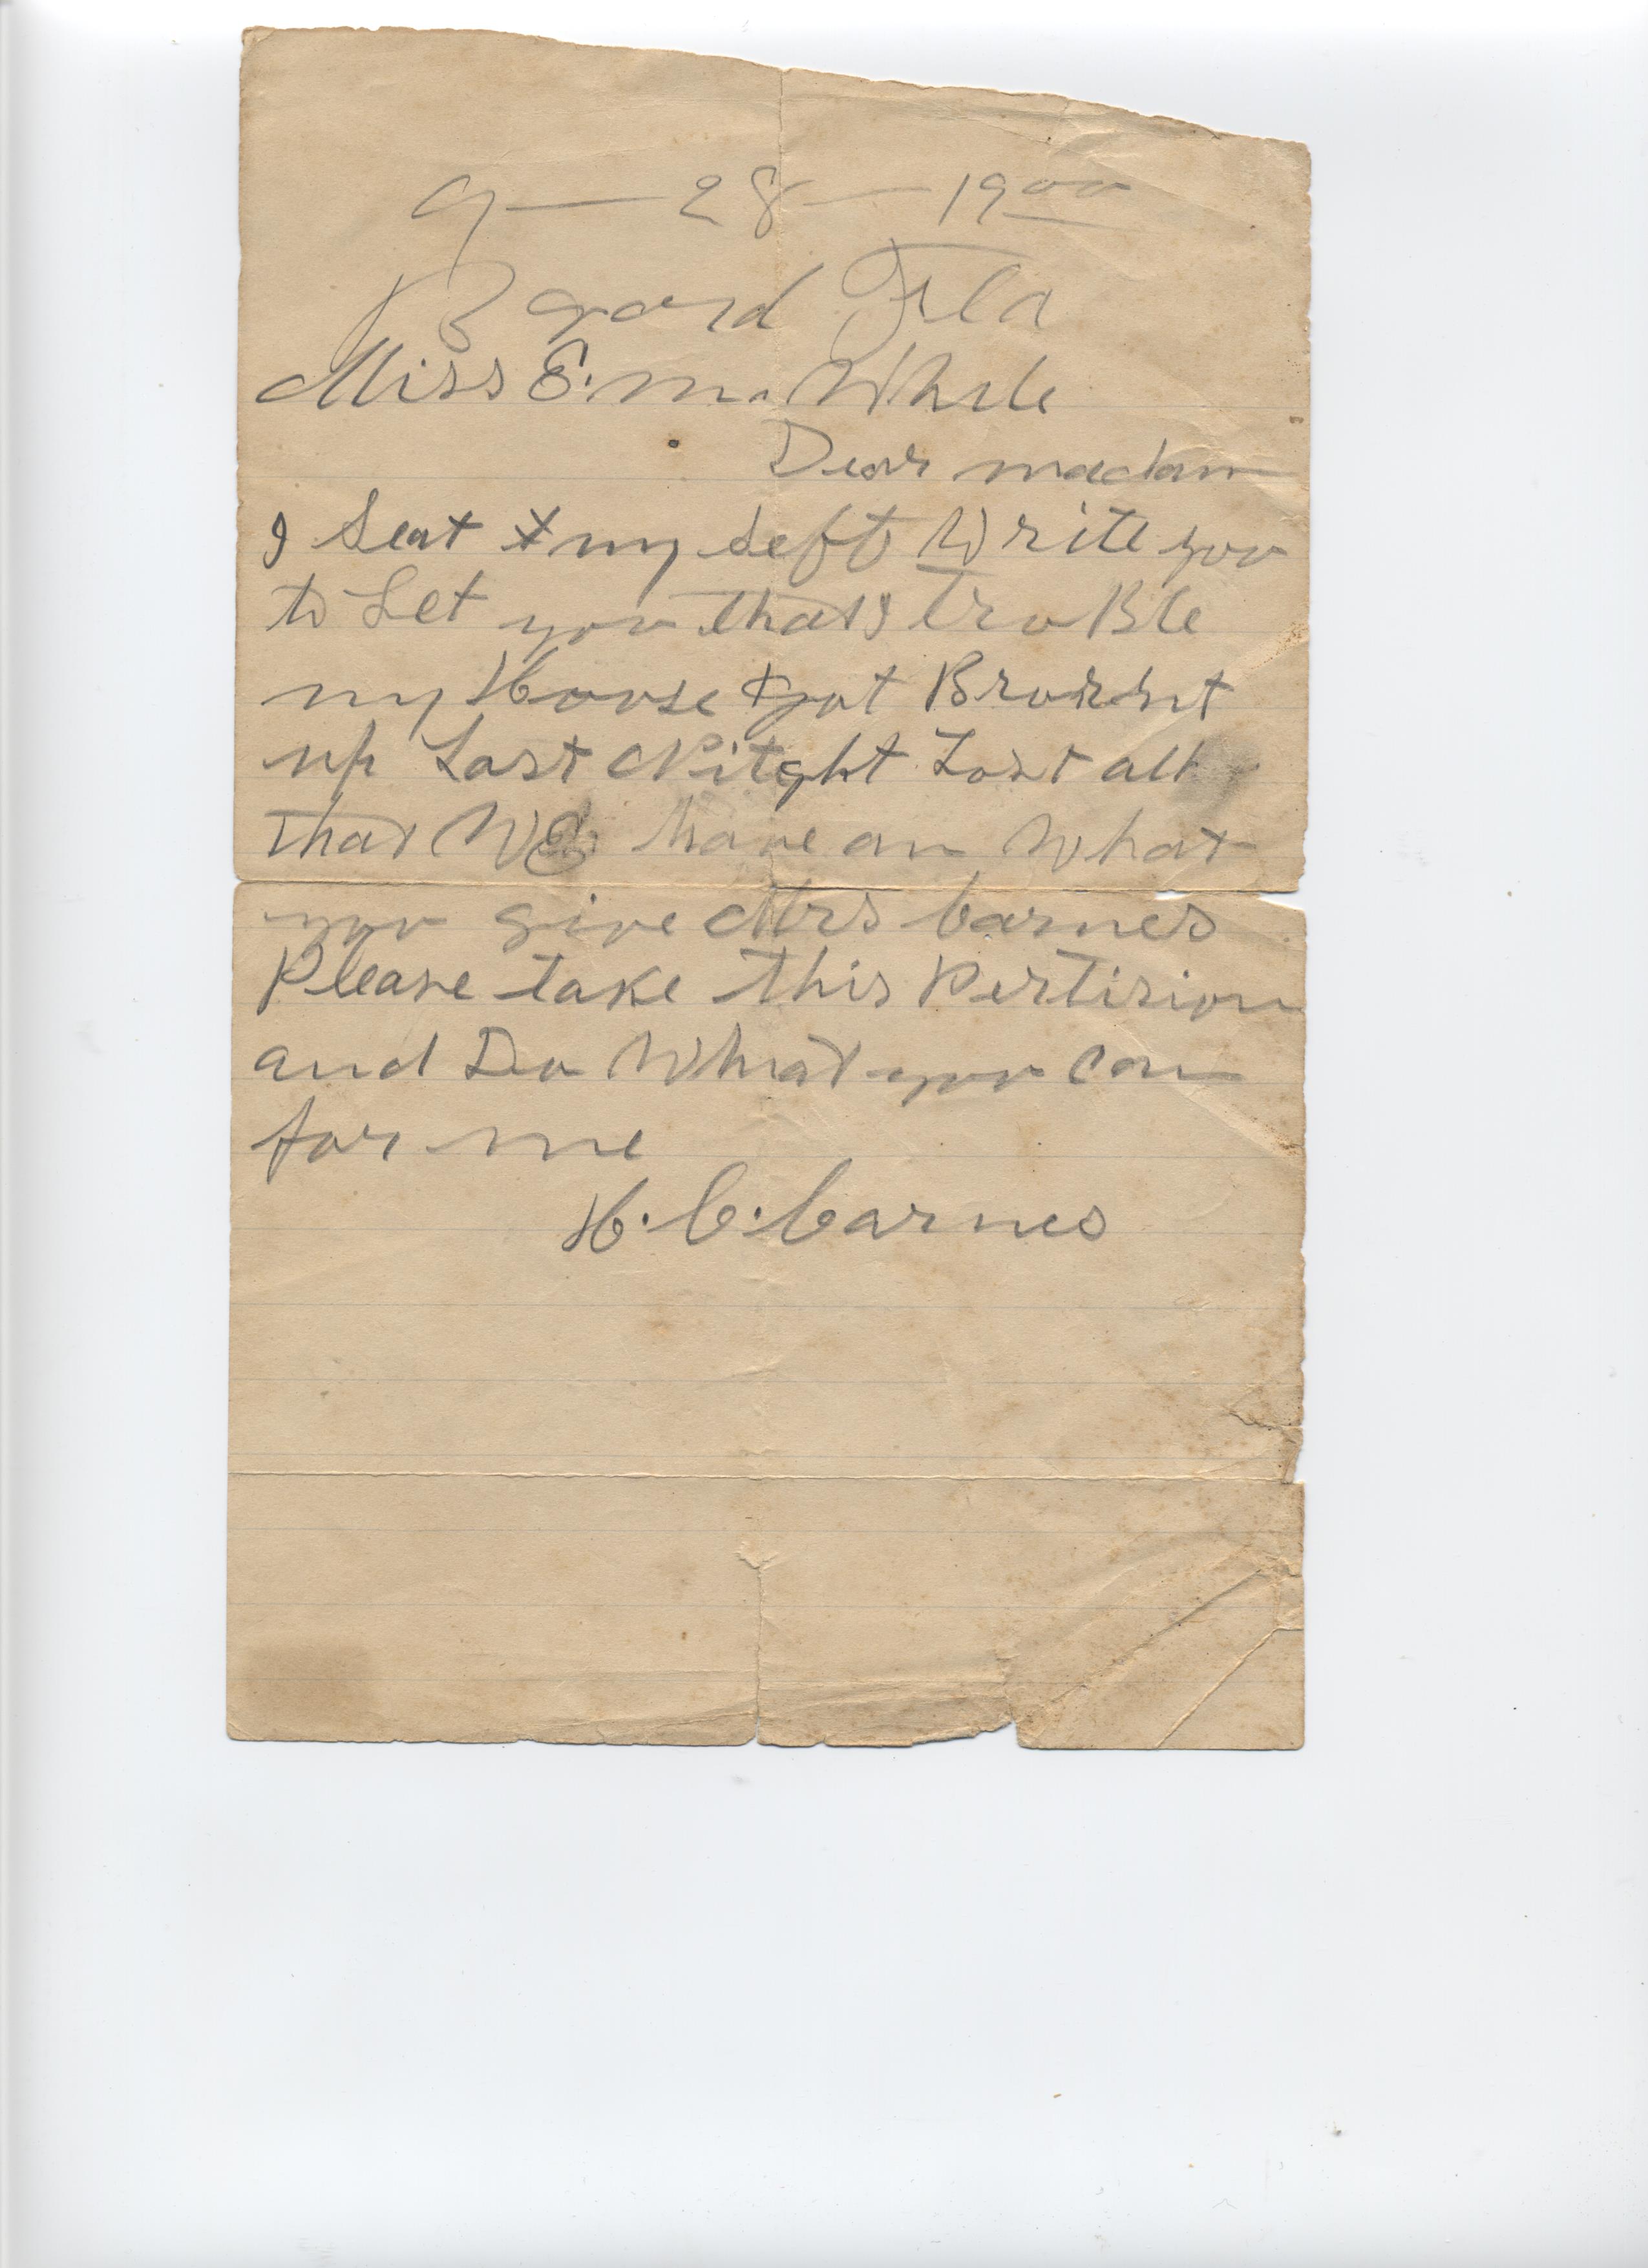 9 — 28 — 1900
Bayard Fla
Miss E. M. While
Dear madam
I Seat my Seft Write you
to Let you that I truBle
my House got
up Last Nitght Lost all
that We have an What
you give Mrs Carnes
Please take this Pertision
and Do What you Can
for me
H. C. Carnes